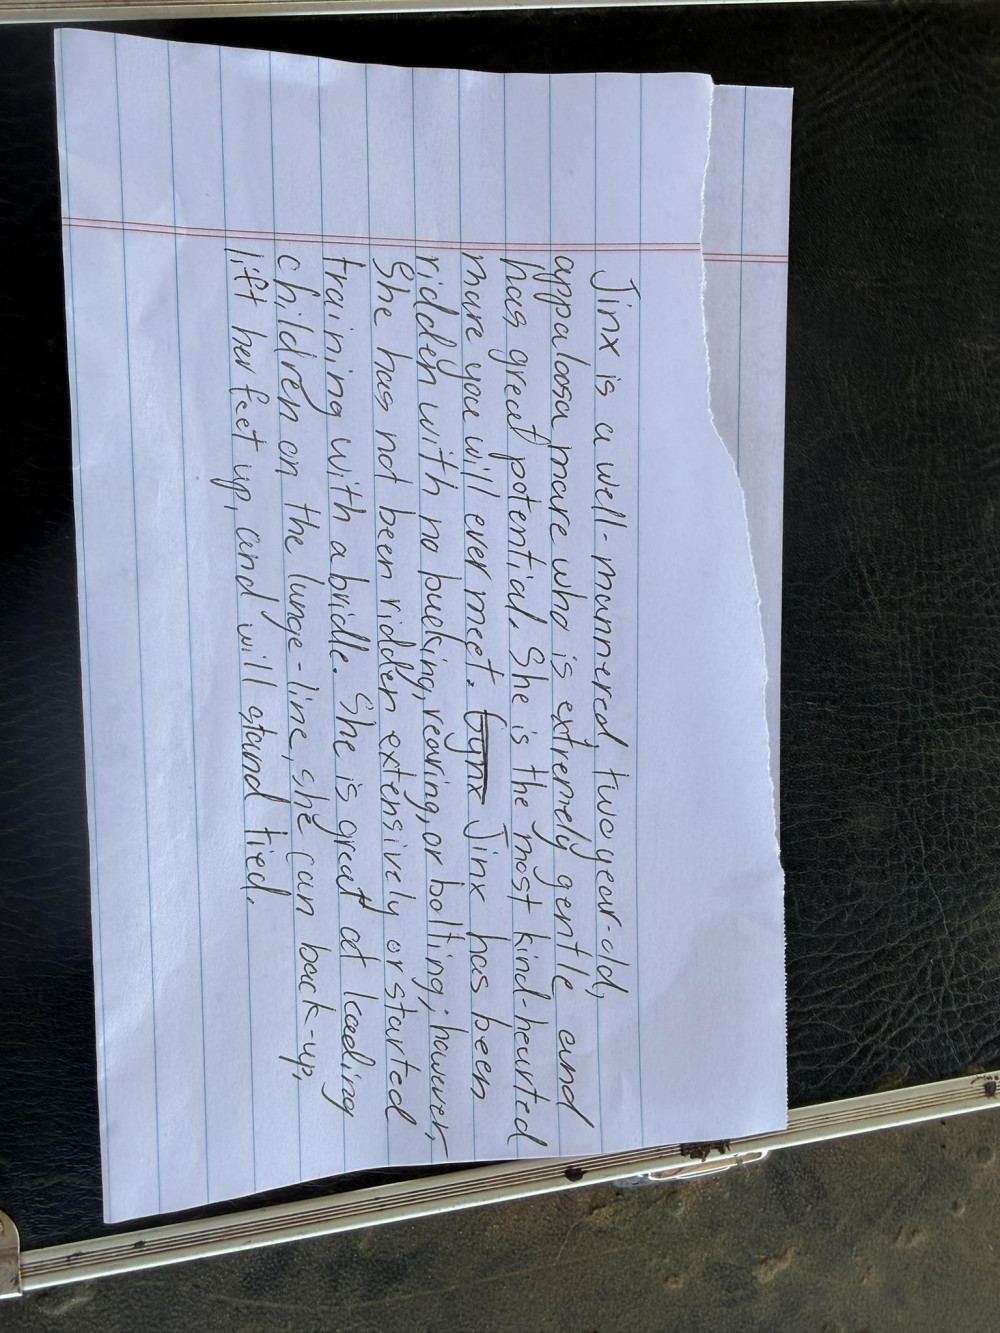 Jinx is a well-mannered, two year-old,
appaloosa mare who is extremely gentle and
has great potential. She is the most kind-hearted
mare you will ever meet. Gynx Jinx has been
ridden with no bucking, rearing, or bolting; however,
She has not been ridden extensively or started
training with a bridle. She is great at leading
children on the lunge-line, she can back-up,
lift her feet up, and will stand tied.